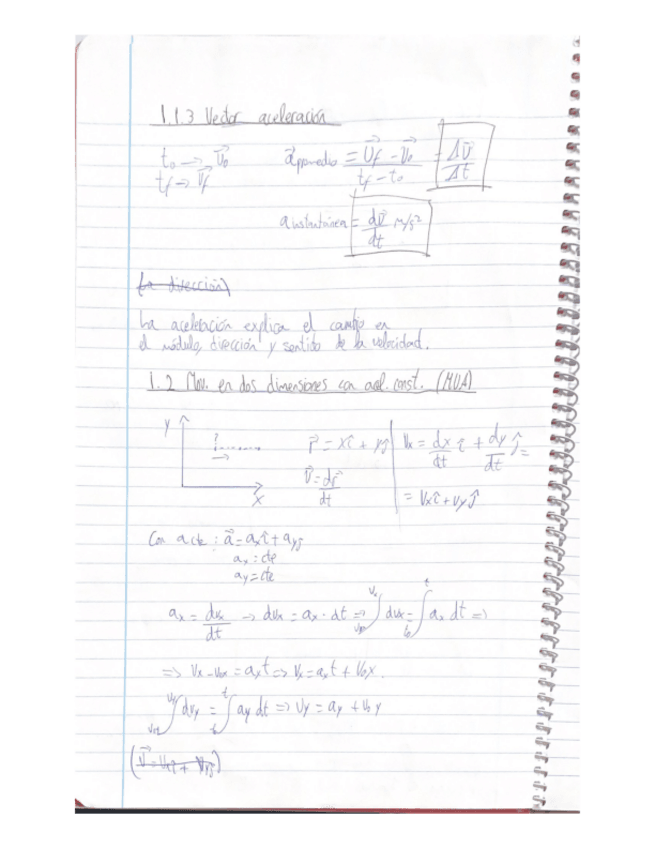 1.1.3 Vector aceleración
t₀ → v⃗₀
t_f → v⃗_f
a⃗ promedio = (v⃗_f - v⃗₀)/(t_f - t₀) = Δv⃗/Δt
a instantánea = dv⃗/dt m/s²
(La dirección)
La aceleración explica el cambio en
el módulo, dirección y sentido de la velocidad.
1.2 Mov. en dos dimensiones con acel. const. (MUA)
y
x
r⃗ = xî + yĵ
v⃗ = dr⃗/dt
Vx = dx/dt î + dy/dt ĵ =
= Vxî + Vyĵ
Con a cte: a⃗ = axî + ayĵ
ax = cte
ay = cte
ax = dVx/dt → dVx = ax · dt => ∫ dVx = ∫ ax dt =>
=> Vx - V₀x = axt => Vx = axt + V₀x.
∫ dVy = ∫ ay dt => Vy = ay + V₀y
(V⃗ = Vxî + Vyĵ)